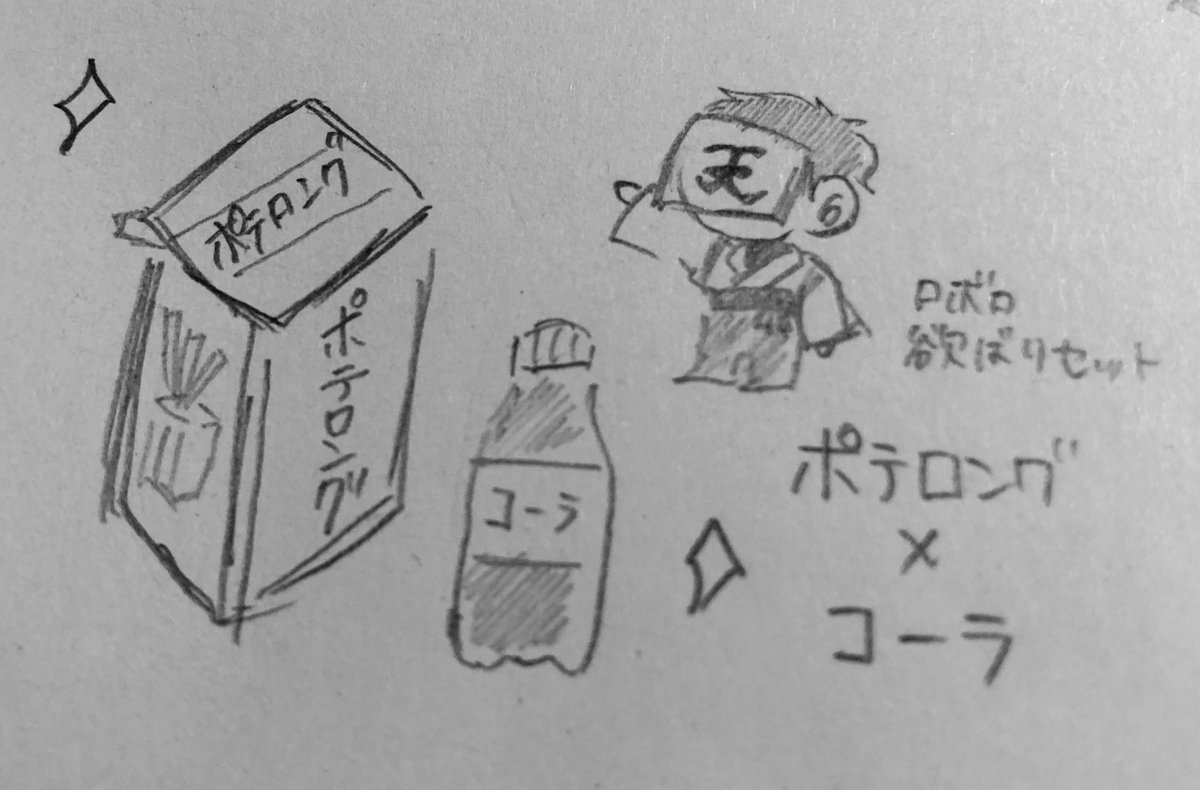 ポテロング
ポテロング
コーラ
天
6
ロボロ
欲ばりセット
ポテロング
×
コーラ